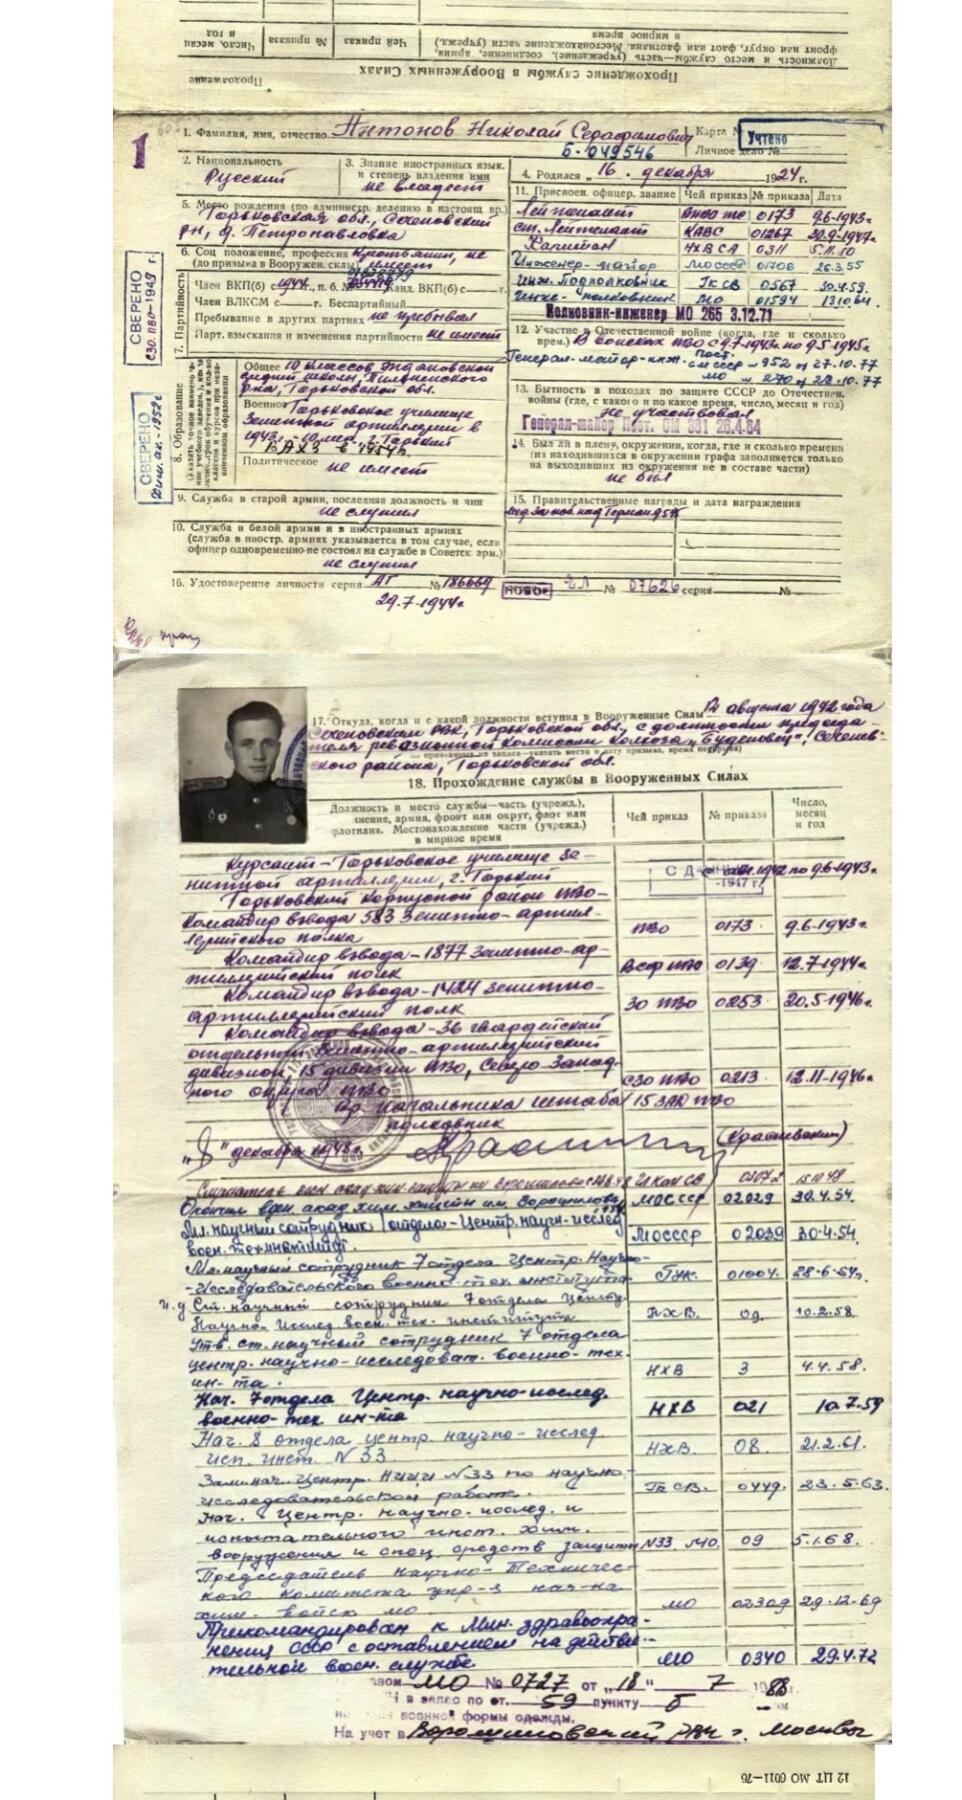 Должность и место службы—часть (учрежд.), соединение, армия,
фронт или округ, флот или флотилия. Местонахождение части (учрежд.)
в мирное время
Чей приказ
№ приказа
Число, месяц
и год
Прохождение службы в Вооруженных Силах
Продолжение
1
1. Фамилия, имя, отчество Антонов Николай Серафимович
Б-049546
Карта №
Личное дело №
Учтено
2. Национальность
Русский
3. Знание иностранных язык.
и степень владения ими
не владеет
4. Родился „ 16 . декабря 1924 г.
5. Место рождения (по администр. делению в настоящ. вр.)
Горьковская обл., Сеченовский
р-н, д. Петропавловка
6. Соц положение, профессия
(до призыва в Вооружен. силы)
7. Партийность
Член ВКП(б) с 1944 г., п. б. № Канд. ВКП(б) с г.
Член ВЛКСМ с г. Беспартийный
Пребывание в других партиях не пребывал
Парт. взыскания и изменения партийности не имеет
8. Образование
Общее 10 классов Ждановской
средней школы, Пильнинского
р-на, Горьковской обл.
Военное Горьковское училище
Зенитной артиллерии в
1943г.-10 мес. г. Горький
ВАХЗ в 1954г.
Политическое не имеет
9. Служба в старой армии, последняя должность и чин
не служил
10. Служба в белой армии и в иностранных армиях
(служба в иностр. армиях указывается в том случае, если
офицер одновременно не состоял на службе в Советск. арм.)
не служил
11. Присвоен. офицер. звание Чей приказ № приказа Дата
Лейтенант 0173 9.6-1943г.
ст. Лейтенант КАВС 01267 30.9-1947г.
Капитан НХВ СА 0311 5.11.50
Инженер-майор МО СССР 01706 26.3.55
Инж. Подполковник ГК СВ 0567 30.4.59.
Инже.-полковник МО 01594 13.10.64
Полковник-инженер МО 265 3.12.71
12. Участие в Отечественной войне (когда, где и сколько
врем.) В войсках ПВО с 9.7-1943г. по 9.5-1945г.
Генерал-майор-инж. Пост.
СМ СССР № 952 от 27.10.77
МО № 270 от 28.10.77
13. Бытность в походах по защите СССР до Отечествен.
войны (где, с какого и по какое время, число, месяц и год)
не участвовал
Генерал-майор Пост. СМ 381 26.4.84
14. Был ли в плену, окружении, когда, где и сколько времени
(из находившихся в окружении графа заполняется только
на выходивших из окружения не в составе части)
не был
15. Правительственные награды и дата награждения
16. Удостоверение личности серия АГ № 186669
29.7-1944г.
ЕЛ № 07626 серия №
СВЕРЕНО
СЗО ПВО-1949 г.
СВЕРЕНО
17. Откуда, когда и с какой должности вступил в Вооруженные Силы 12 августа 1942 года
Сеченовским РВК, Горьковской обл., с должности председа-
теля ревизионной комиссии колхоза „Буденовец", Сеченов-
ского района, Горьковской обл.
18. Прохождение службы в Вооруженных Силах
Должность и место службы—часть (учрежд.),
соединение, армия, фронт или округ, флот или
флотилия. Местонахождение части (учрежд.)
в мирное время
Чей приказ
№ приказа
Число,
месяц
и год
Курсант-Горьковское училище зе-
нитной артиллерии, г. Горький 1942 по 9.6-1943г.
Горьковский Корпусной район ПВО-
Командир взвода 583 Зенитно-артил-
лерийского полка ПВО 0173. 9.6-1943г.
Командир взвода-1877 Зенитно-ар-
тиллерийский полк 0139. 12.7-1944г.
Командир взвода-1424 Зенитно-
артиллерийский полк ЗО ПВО 0253. 20.5-1946г.
Командир взвода-36 гвардейский
отдельный Зенитно-артиллерийский
дивизион, 15 дивизии ПВО, Северо-Запад-
ного округа ПВО СЗО ПВО 0213. 12.11-1946г.
Вр. Начальника штаба 15 ПВО
полковник
„8" декабря 1948г. (Крашивский)
Окончил воен. акад. хим. защиты им. Ворошилова МО СССР 02029 30.4.54.
Мл. научный сотрудник 1 отдела-Центр. научн-исслед
воен. тех. МО СССР 02039 30.4.54.
Мл. научный сотрудник 7 отдела Центр. Научно-
-Исследовательского военно-тех. института 01004. 28.6.54г.
и.д. Ст. научный сотрудник 7 отдела Центр.
Научно-Исслед. воен. тех. института НХВ. 09. 10.2.58.
Утв. ст. научный сотрудник 7 отдела
центр. научно-исследоват. военно-тех.
ин-та. НХВ 3 4.4.58.
Нач. 7 отдела Центр. научно-исслед.
военно-тех. ин-та НХВ 021 10.7.59
Нач. 8 отдела центр. научно-исслед.
исп. инст. N 33 НХВ. 08. 21.2.61.
Зам. нач. Центр. НИИИ N 33 по научно-
исследовательской работе. ГК СВ. 0449. 23.5.63.
Нач. Центр. научно-исслед. и
испытательного инст. хим.
вооружения и спец. средств защиты N33 МО. 09 5.1.68.
Председатель Научно-Техничес-
кого комитета упр-я нач-ка
хим. войск МО МО 02309 29.12.69
Прикомандирован к Мин. здравоохра-
нения СССР с оставлением на действи-
тельной воен. службе МО 0340 29.4.72
МО № 0727 от „18" 7 1988
в запас по ст. 59 пункту б
военной формы одежды.
На учет в Ворошиловский РВК г. Москвы
12 ЦТ МО 6011—76